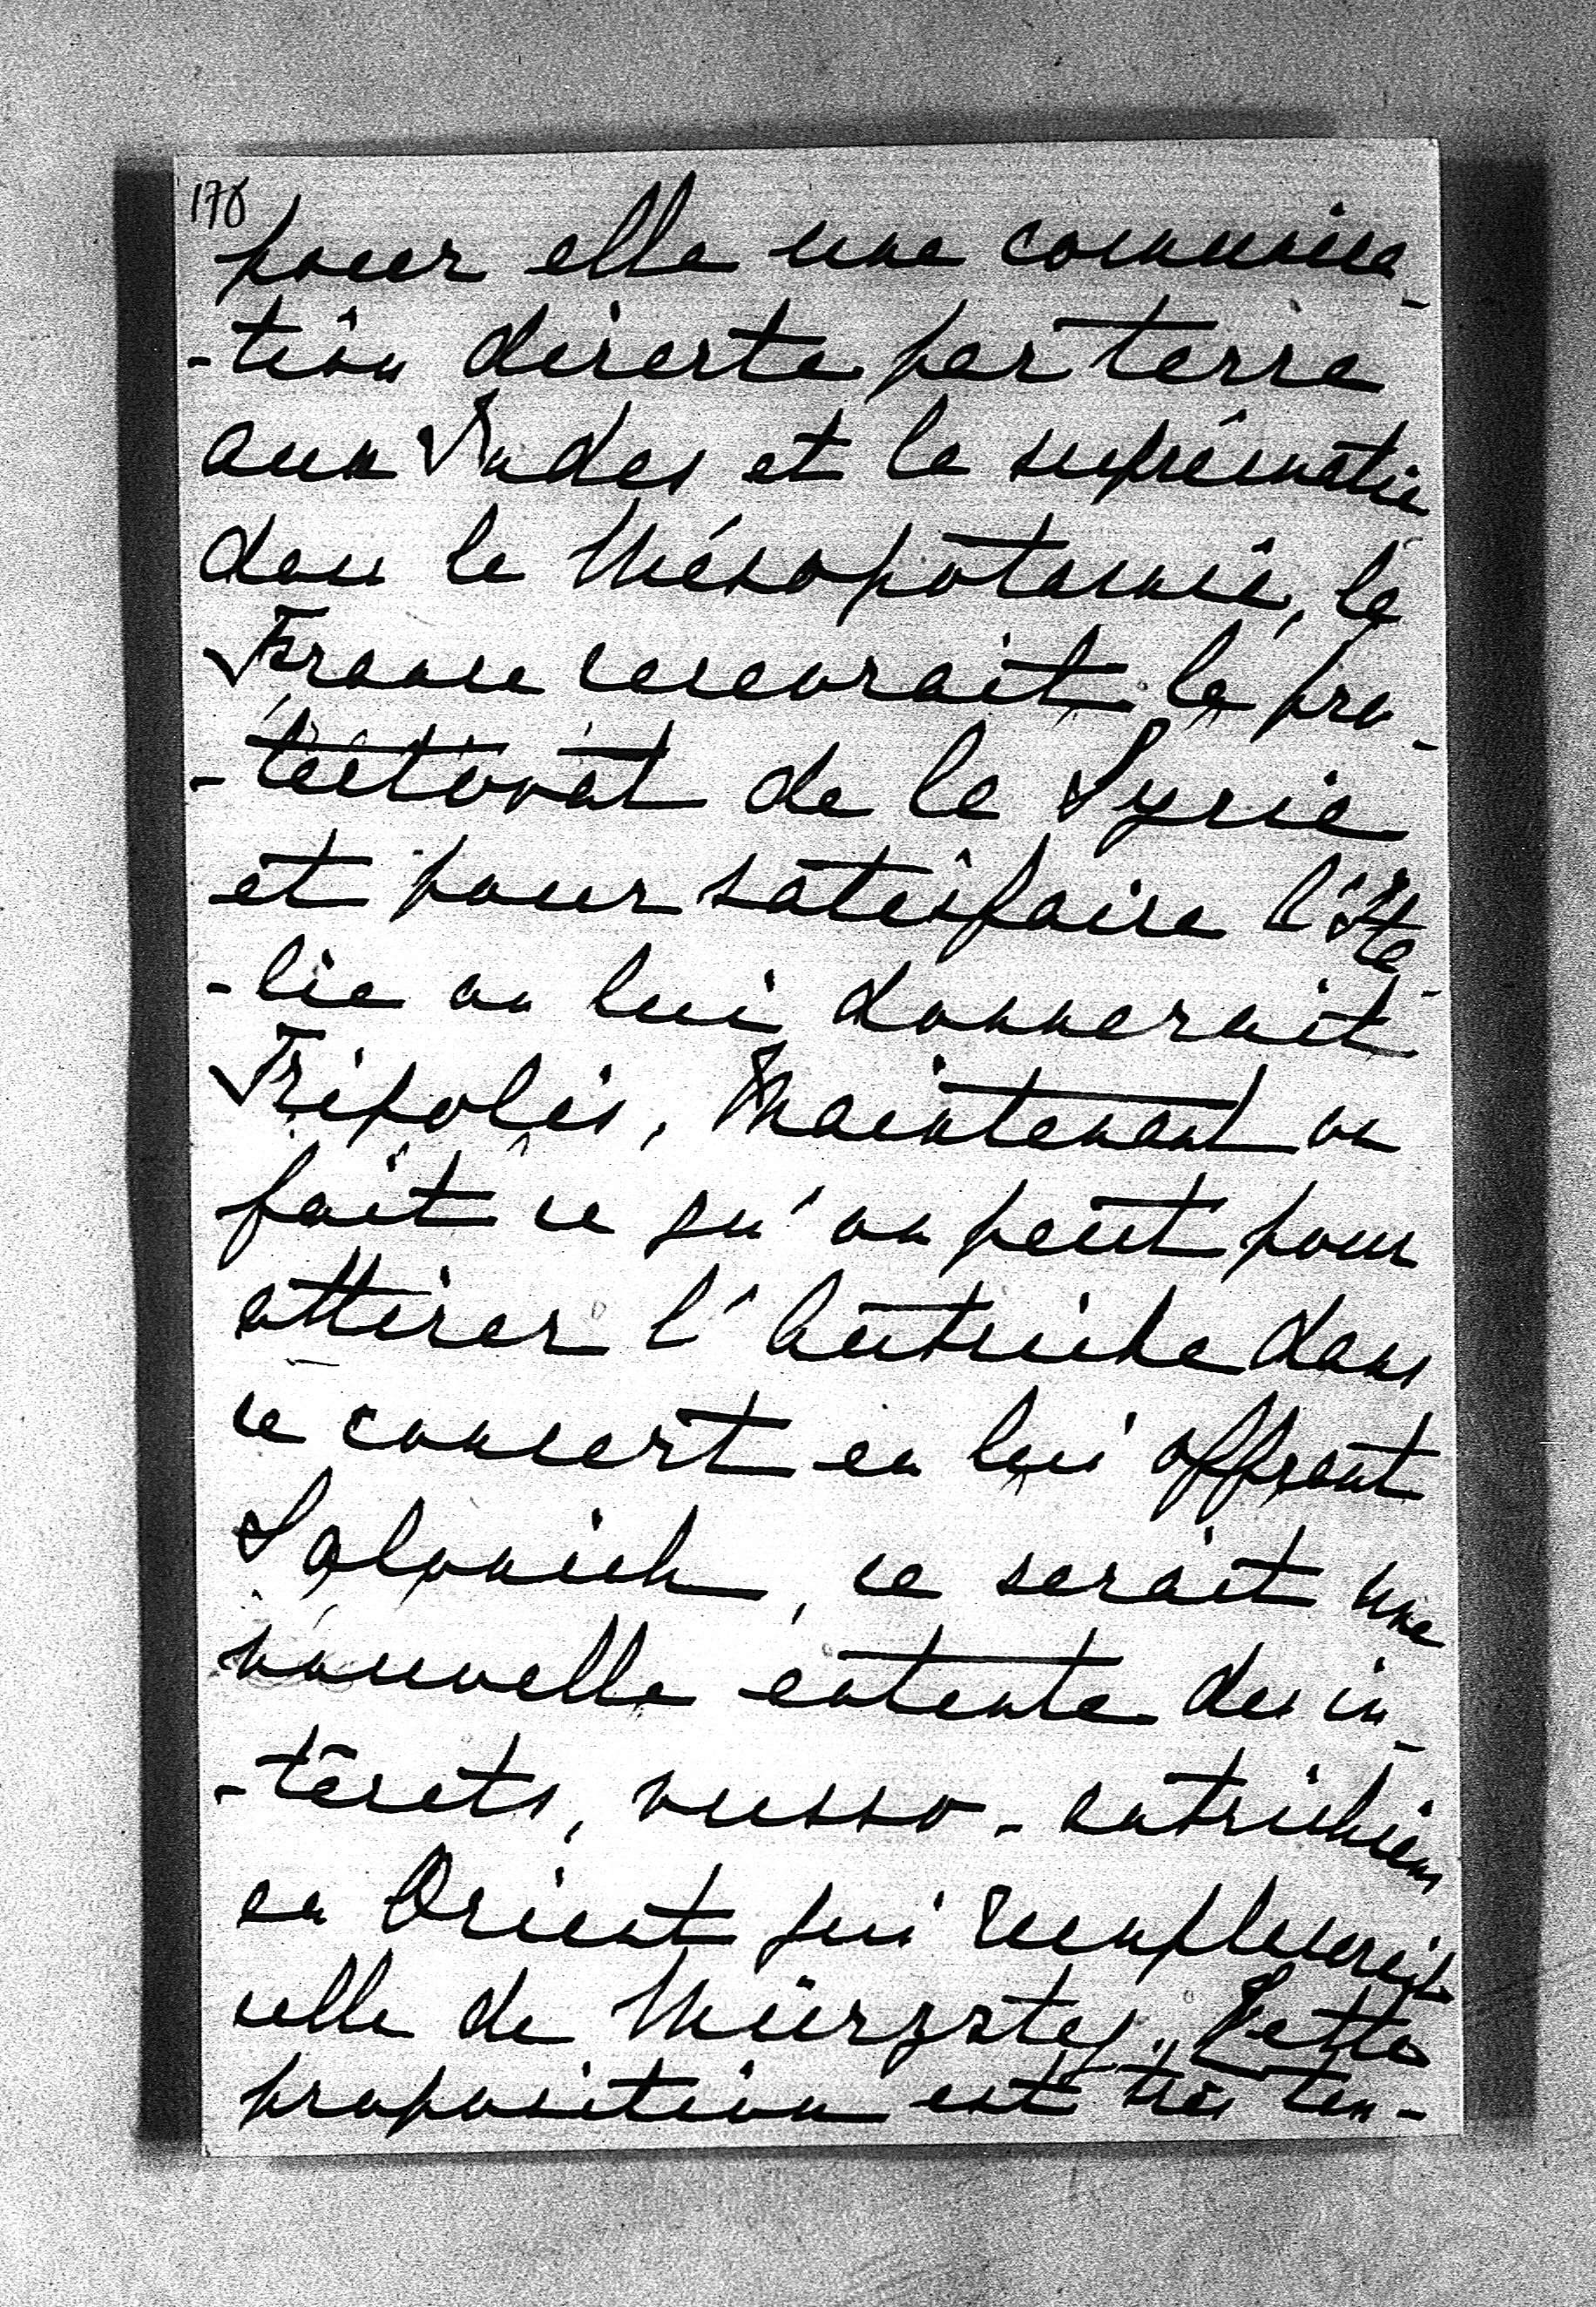 178
pour elle une communica-
-tion directe par terre
aux Indes et la suprématie
dans la Mésopotamie, la
France recevrait le pro-
-tectorat de la Syrie
et pour satisfaire l'Ita-
-lie on lui donnerait
Tripolis. Maintenant on
fait ce qu'on peut pour
attirer l'Autriche dans
ce concert en lui offrant
Salonich, ce serait une
nouvelle entente des in-
-térets, russo-autrichiens
en Orient qui remplacerait
celle de Mürzsteg. Cette
proposition est très ten-